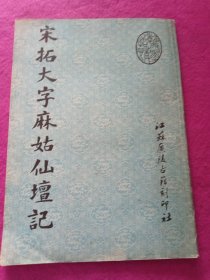 宋拓大字麻姑仙壇記
江蘇廣陵古籍刻印社